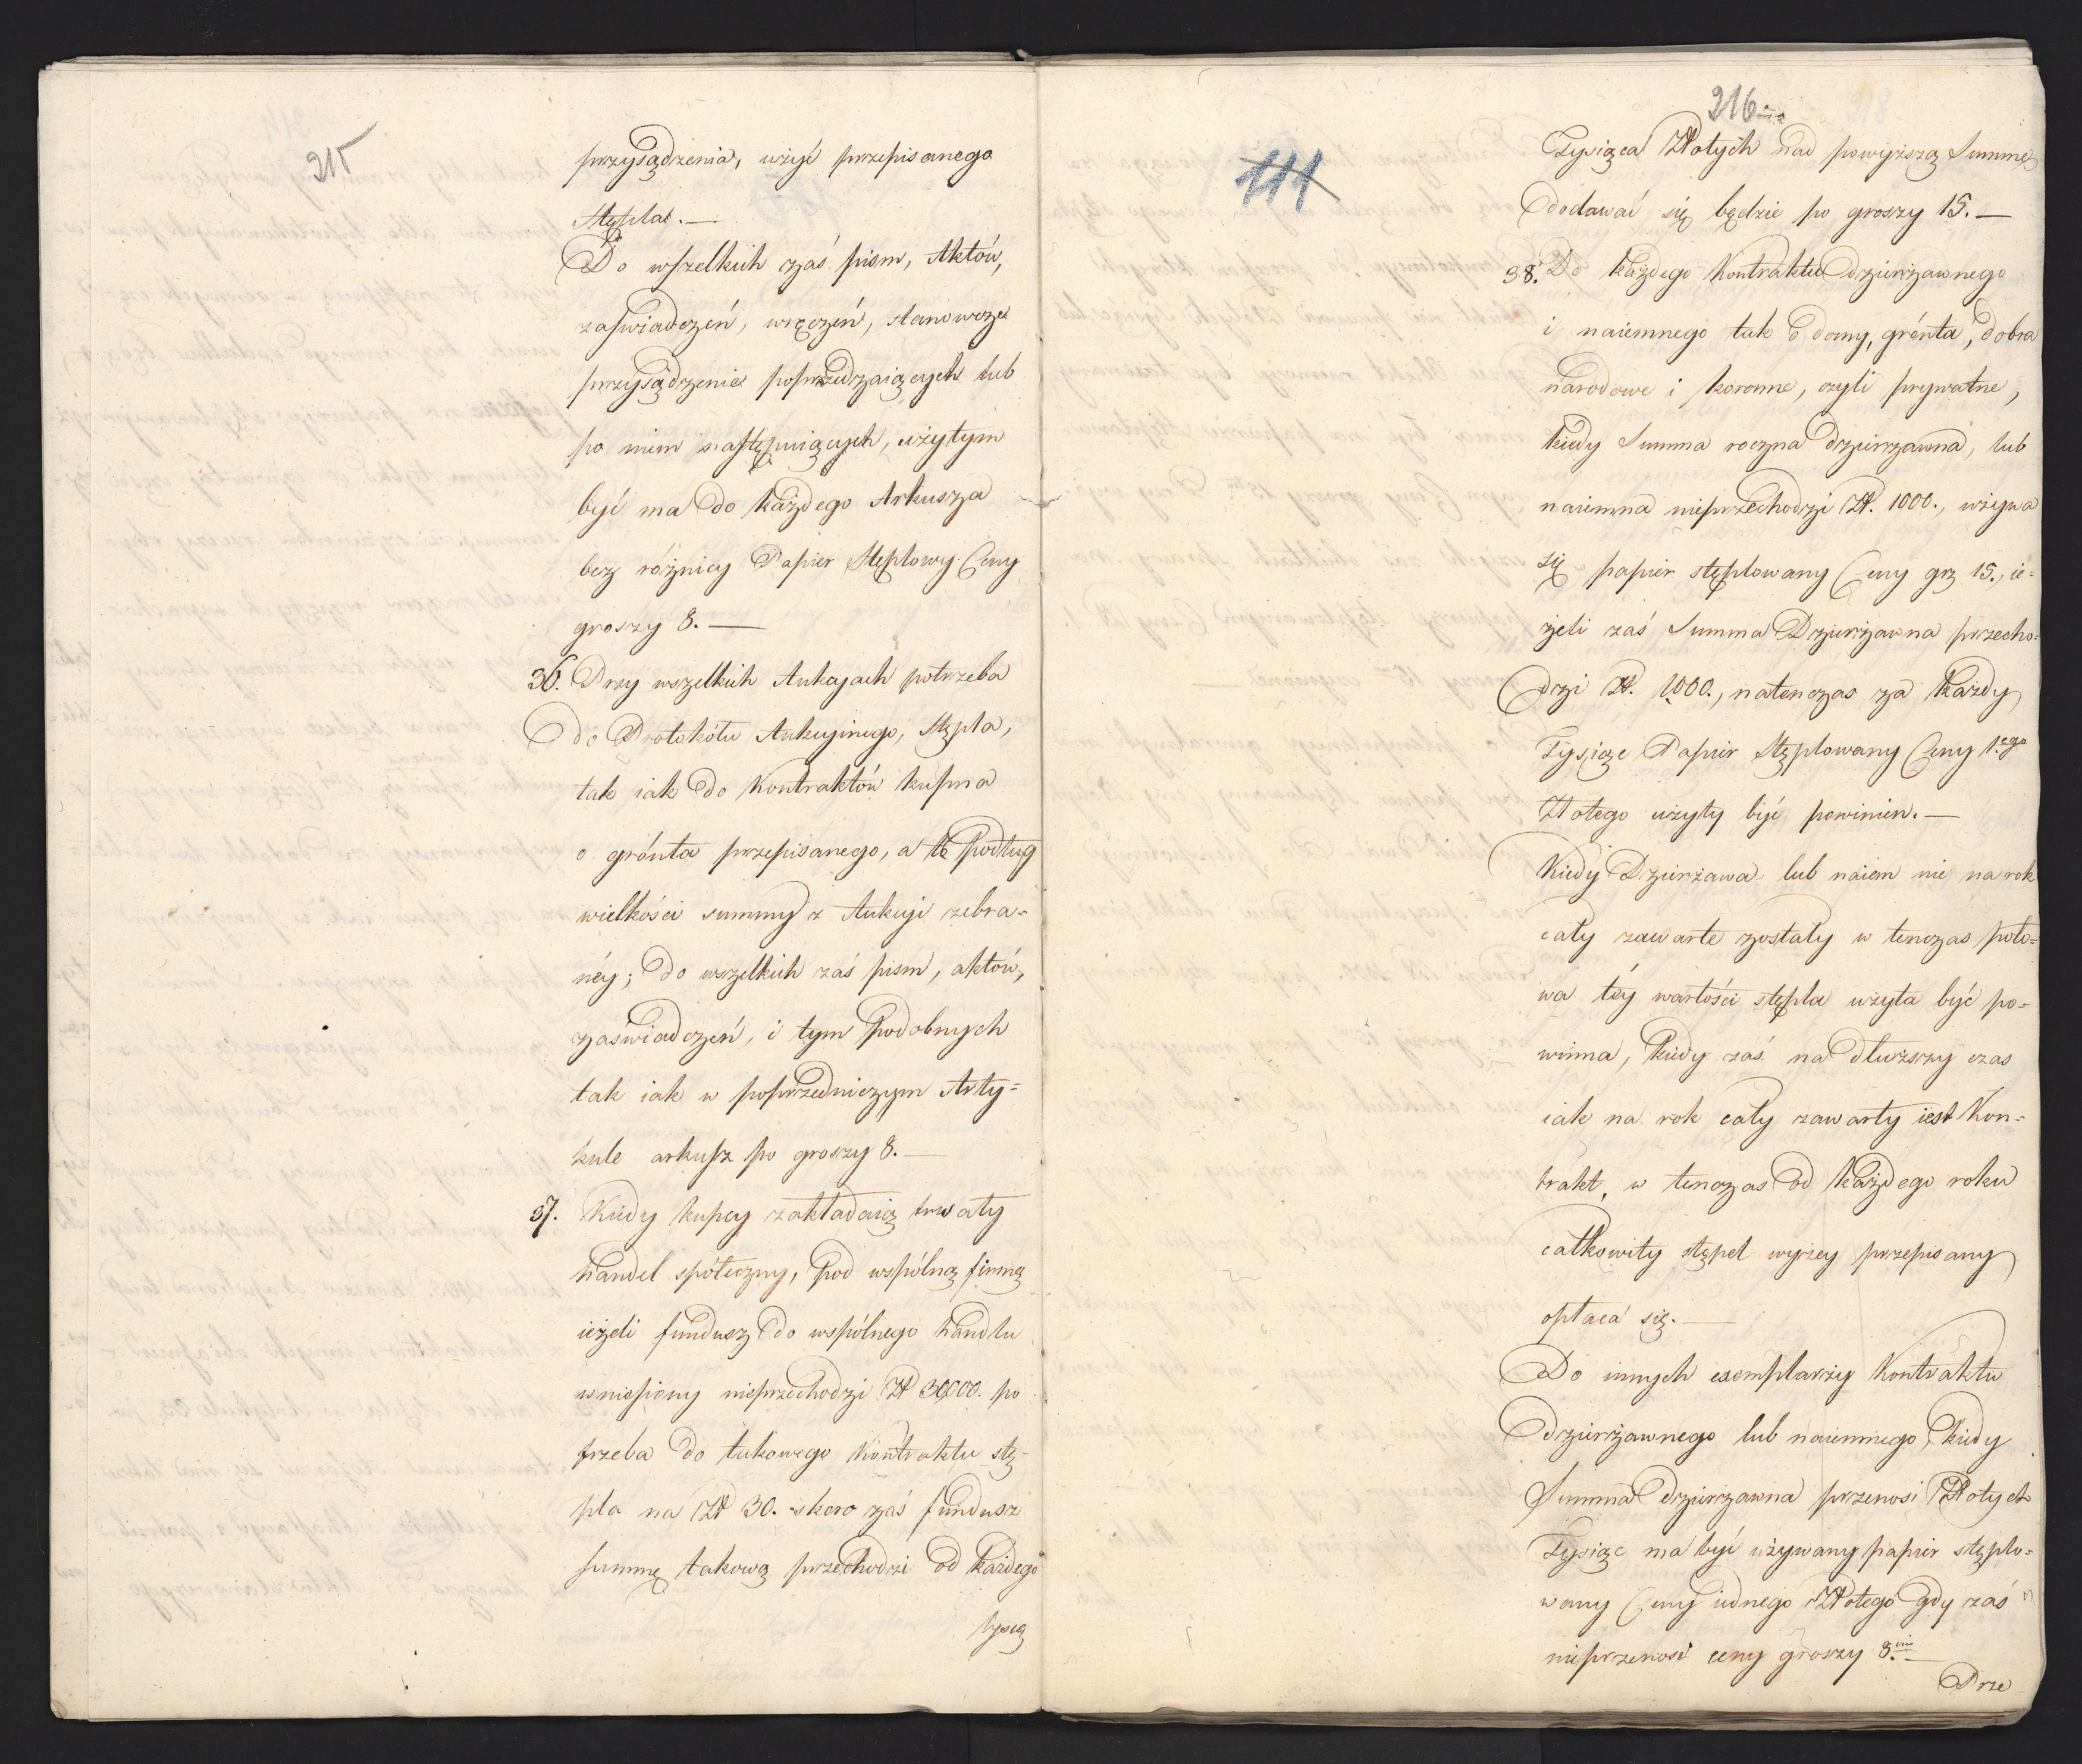 215
przysądzenia, użyć przepisanego
Stępla.—
Do wszelkich zaś pism, Aktów,
zaświadczeń, wręczeń, stanowcze
przysądzenie poprzedzaiących lub
po nim następuiących, użytym
być ma do każdego Arkusza
bez różnicy Papier Stęplowy Ceny
groszy 8.—
36. Przy wszelkich Aukcyach potrzeba
do Protokółu Aukcyinego, Stępla,
tak iak do Kontraktów kupna
o grónta przepisanego, a to podług
wielkości summy z Aukcyi zebra=
néy; do wszelkich zaś pism, aktów,
zaświadczeń, i tym podobnych
tak iak w poprzedniczym Arty=
kule arkusz po groszy 8.—
37. Kiedy kupcy zakładaią trwały
handel spółeczny, pod wspólną firmą
ieżeli fundusz do wspólnego handlu
wniesiony nieprzechodzi Zł 30,000. po
trzeba do takowego Kontraktu stę-
pla na Zł 30. skoro zaś fundusz
summę takową przechodzi od każdego
tysią
216
111
Tysiąca Złotych nad powyższą Summę
dodawać się będzie po groszy 15.—
38. Do każdego Kontraktu dzierżawnego
i naiemnego tak o domy, grónta, dobra
narodowe i koronne, czyli prywatne,
kiedy Summa roczna dzierżawna, lub
naiemna nieprzechodzi Zł. 1000., używa
się papier stęplowany Ceny grz 15., ie=
żeli zaś Summa Dzierżawna przecho=
dzi Zł. 1000., natenczas za każdy
Tysiąc Papier Stęplowany Ceny 1.ego
Złotego użyty być powinien.—
Kiedy Dzierżawa lub naiem nie na rok
cały zawarte zostały w tenczas poło=
wa téy wartości stępla użyta być po=
winna, kiedy zaś na dłuższy czas
iak na rok cały zawarty iest Kon=
trakt, w tenczas od każdego roku
całkowity stępel wyżey przepisany
opłaca się.—
Do innych exemplarzy Kontraktu
dzierżawnego lub naiemnego, kiedy
Summa dzierżawna przenosi Złotych
Tysiąc ma być używany papier stęplo=
wany Ceny iednego Złotego gdy zaś
nieprzenosi ceny groszy 8.—
Prze